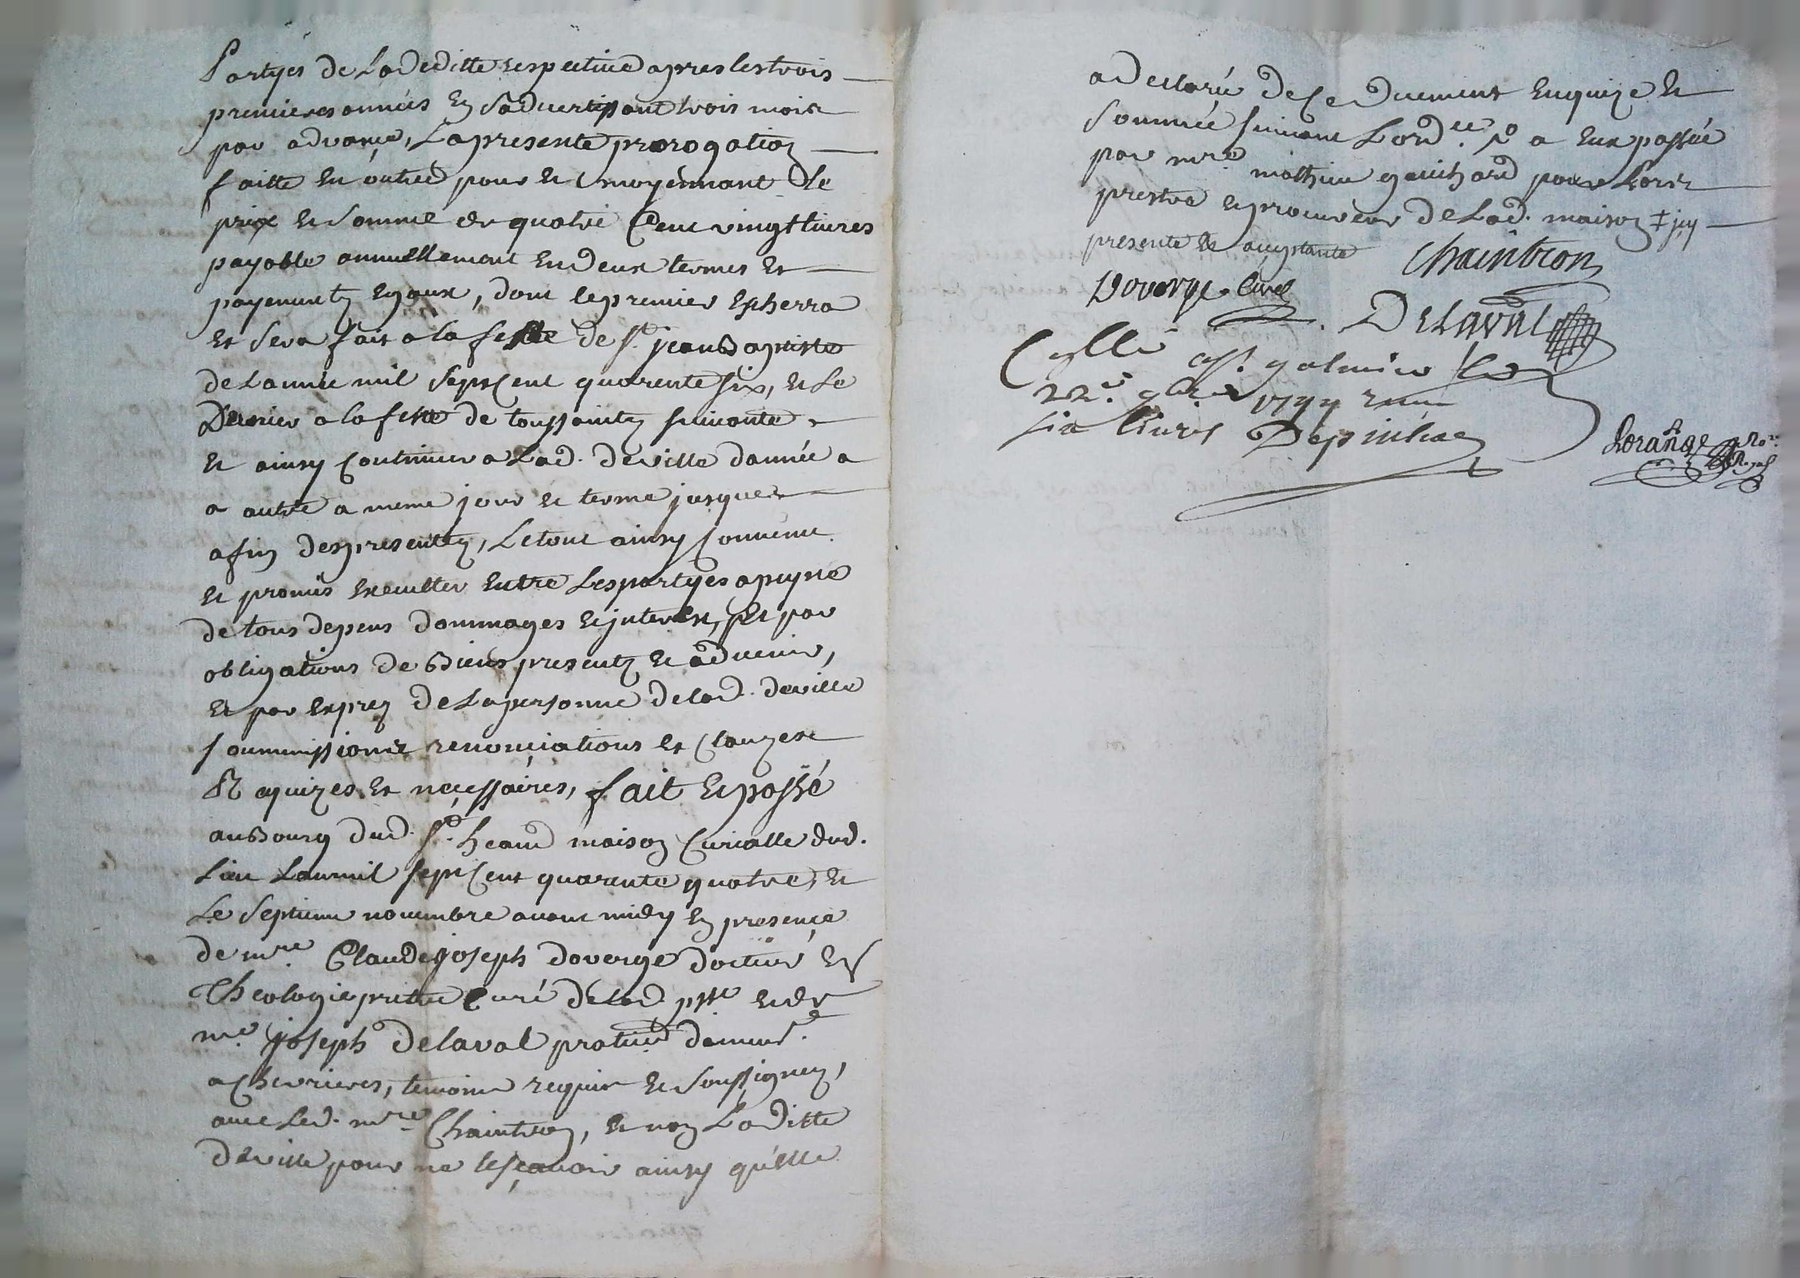 Partyes de Ladeditte respective apres les trois
premieres années En s'advertissant trois mois
par advance, La presente prorogation
faitte En outre pour et moyennant Le
prix et somme de quatre Cent vingt livres
payable annuellement En deux termes et
payements Egaux, dont le premier Escherra
et sera fait a la feste de st. jean Baptiste
de Lannée mil sept Cent quarente six, et Le
Dernier a la feste de toussaints suivante
et ainsy Continuer a Lad. deville d'année a
autre a meme jour et terme jusques
afin des presentes, Le tout ainsy Convenu
et promis Executter Entre Les partyes a peyne
de tous depens dommages et interest, et par
obligations de Biens presents et advenir,
et par Exprez de La personne de lad. deville
soummissions renonciations et Clauzes
Requizes et necessaires, fait et passé
au Bourg dud. st. heand maison Curialle dud.
Lieu Lan mil sept Cent quarente quatre, et
Le septieme novembre avant midy En presence
de mre. Claude joseph doverge docteur En
Theologie prettre Curé de lad psse et de
me. joseph delaval praticien demeurt.
a Chevrieres, temoins requis et soussignez,
avec Led. mre. Chaintron, et non Laditte
deville pour ne le sçavoir ainsy qu'elle
a declaré de Ce duement Enquize et
sommée suivant Lord.ce a Eux passée
par mre. mathieu guichard pour Lors
prestre et procureur de Lad. maison ‡ jcy
presente et aceptante
Chaintron
Doverge Curé
Delaval
Collé a st. galmier le
22e. 9bre 1744 reçu
six livres Depinhac
Lorange nore. Royal